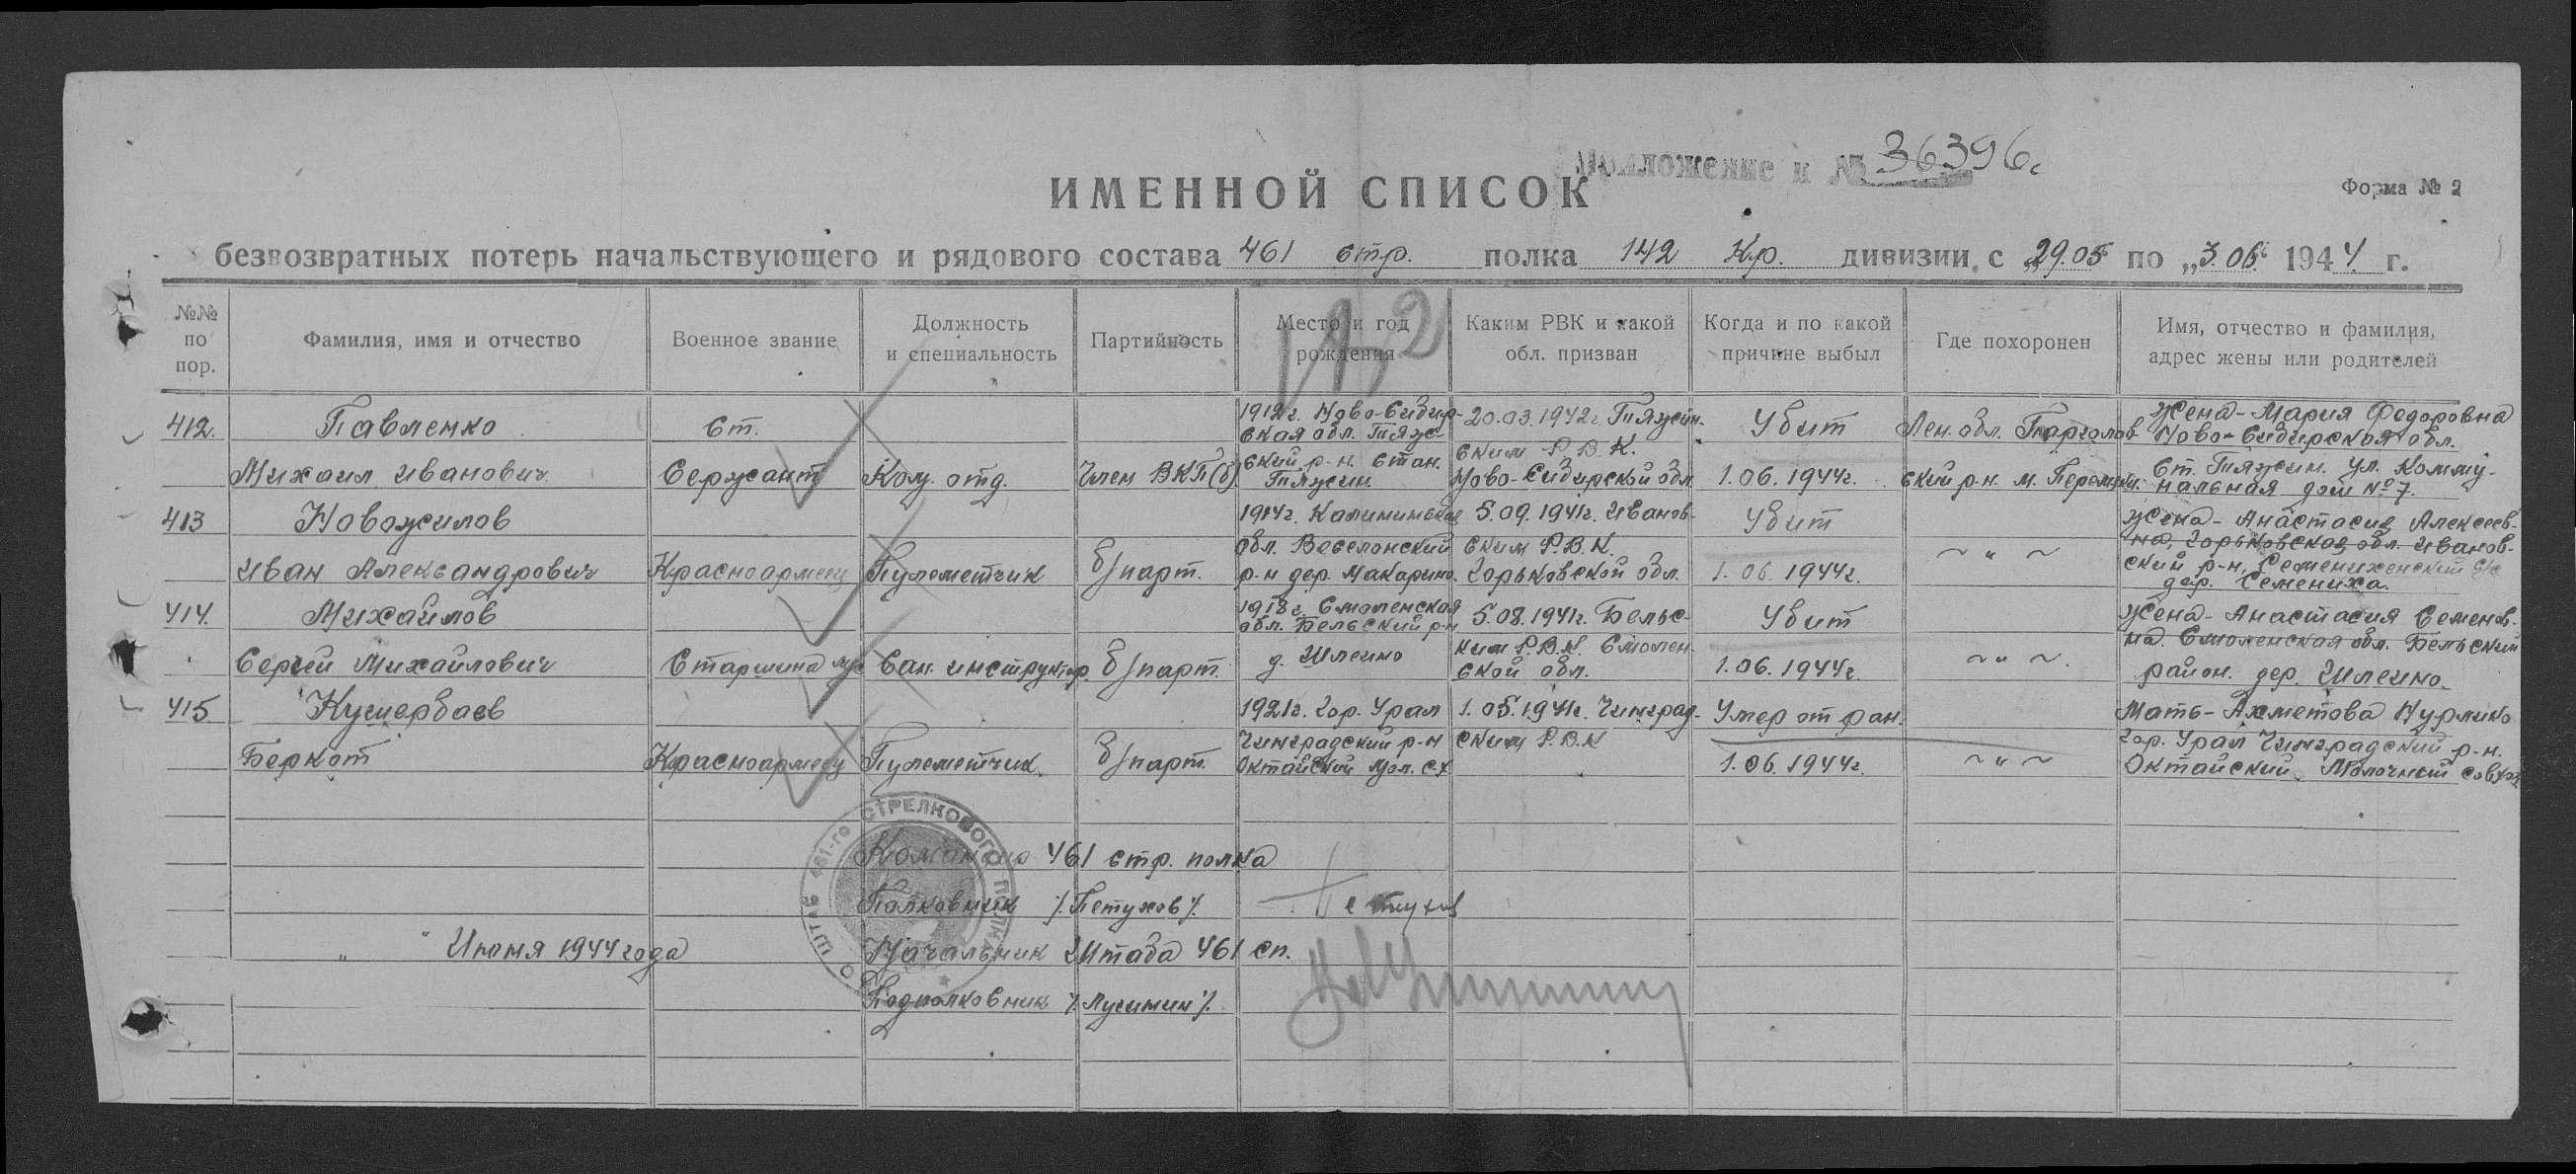 Приложение к № 36396с
ИМЕННОЙ СПИСОК
Форма № 2
безвозвратных потерь начальствующего и рядового состава 461 стр. полка 142 Кр. дивизии с „29.05 по „3.06 1944 г.
№№ по пор.
Фамилия, имя и отчество
Военное звание
Должность и специальность
Партийность
Место и год рождения
Каким РВК и какой обл. призван
Когда и по какой причине выбыл
Где похоронен
Имя, отчество и фамилия, адрес жены или родителей
412. Павленко
Михаил Иванович
Ст.
Сержант
Ком. отд.
Член ВКП(б)
1912г. Ново-Сибир-
ская обл. Тяж-
ский р-н. стан.
Тяжин.
20.03.1942г. Тяжин-
ским Р.В.К.
Ново-Сибирской обл.
Убит
1.06.1944г.
Лен. обл. Парголов-
ский р-н. м.
Жена-Мария Федоровна
Ново-Сибирская обл.
ст. Тяжин. ул. Комму-
нальная дом №7.
413 Новожилов
Иван Александрович
Красноармеец
Пулеметчик
б/парт.
1914г. Калининская
обл. Весегонский
р-н дер. Макарино.
5.09.1941г. Иванов-
ским Р.В.К.
Горьковской обл.
Убит
1.06.1944г.
~ " ~
Жена-Анастасия Алексеев-
на, Горьковская обл. Иванов-
ский р-н, Семенихенский с/с
дер. Семениха.
414. Михайлов
Сергей Михайлович
Старшина м/с
Сан. инструктор.
б/парт.
1918г. Смоленская
обл. Бельский р-н
д. Шлеино
5.08.1941г. Бельс-
ким Р.В.К. Смолен-
ской обл.
Убит
1.06.1944г.
~ " ~
Жена-Анастасия Семенов-
на. Смоленская обл. Бельский
район. дер. Шлеино.
415 Кушербаев
Беркот
Красноармеец
Пулеметчик.
б/парт.
1921г. Гор. Урал
Чинградский р-н
Октайской мол. сх
1.05.1941г. Чинград-
ским Р.В.К
Умер от ран.
1.06.1944г.
~ " ~
Мать-Ахметова Нурлико
гор. Урал Чинградский р-н.
Октайский Молочный совхоз
461-го СТРЕЛКОВОГО ПОЛКА ШТАБ
461 стр. полка
Полковник /.Петухов/.
Петухов
„ " Июня 1944 года
Начальник Штаба 461 сп.
Подполковник